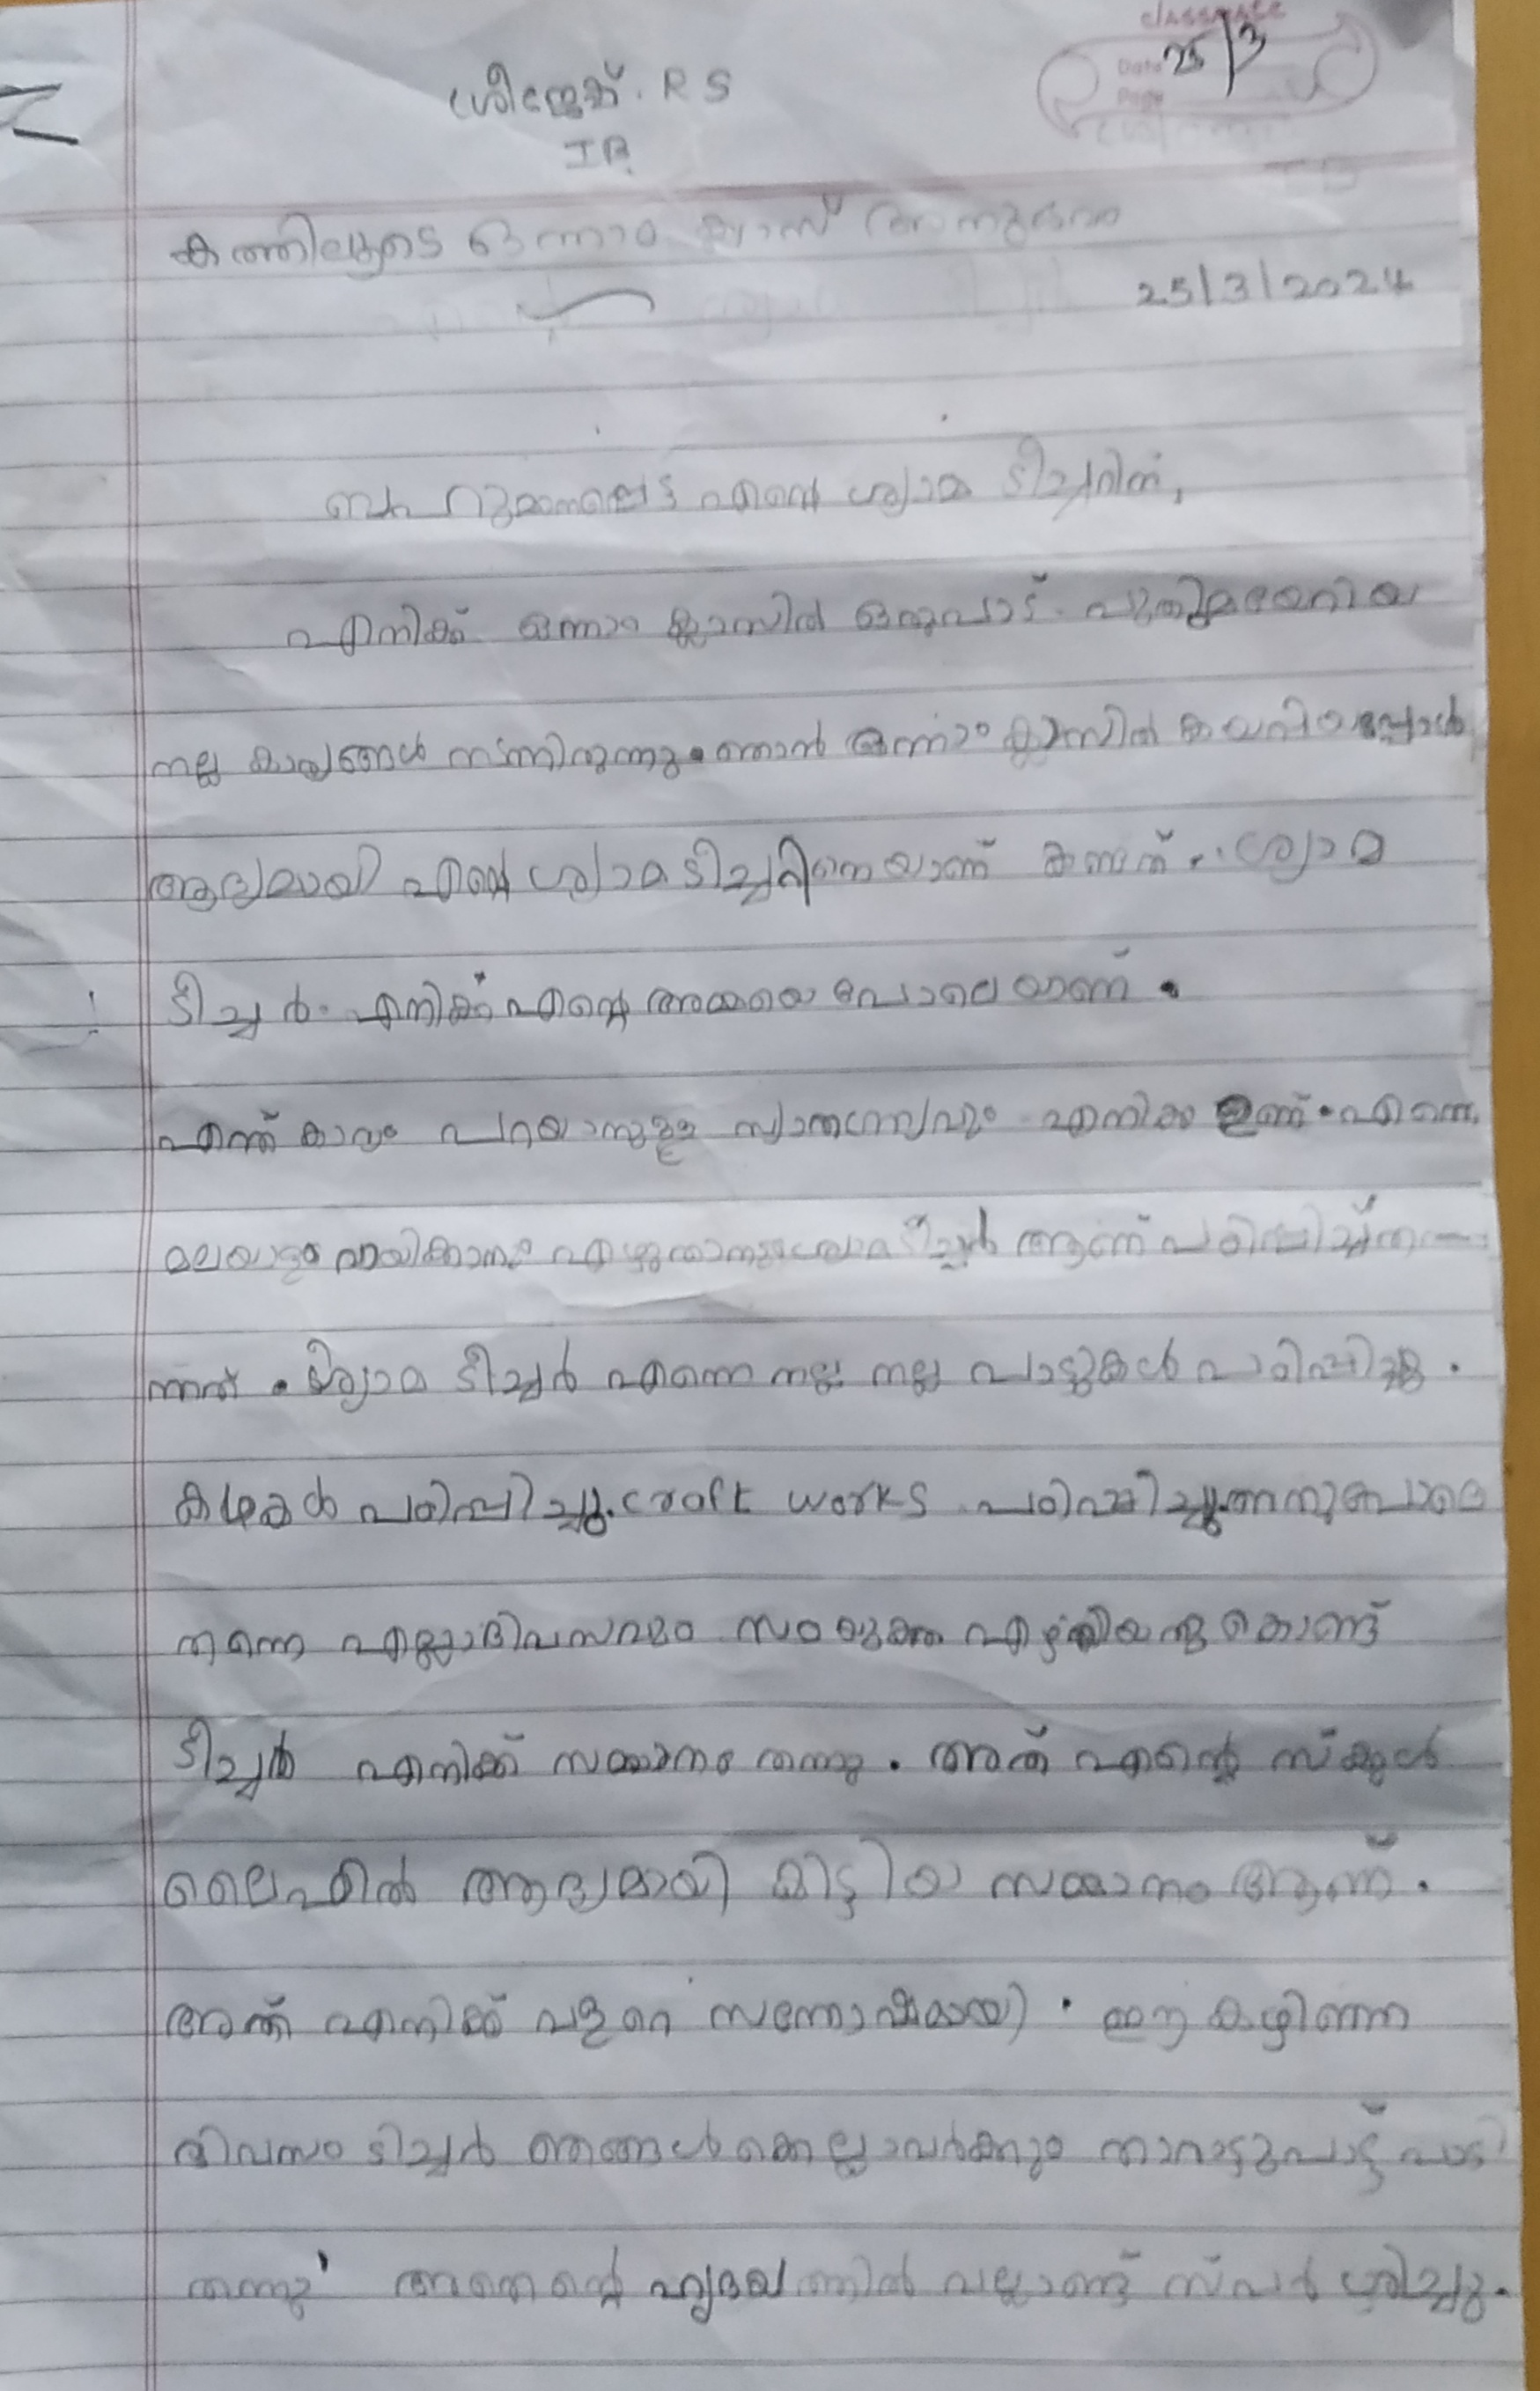 classmate
Date 25/3
Page
R S
I B
കത്തിലൂടെ ഒന്നാം ക്ലാസ് അനുഭവം
25/3/2024
ബഹുമാനപ്പെട്ട എന്റെ ശ്യാമ ടീച്ചറിന്,
എനിക്ക് ഒന്നാം ക്ലാസിൽ ഒരുപാട് പുതുമയേറിയ
നല്ല കാര്യങ്ങൾ നടന്നിരുന്നു. ഞാൻ ഒന്നാം ക്ലാസിൽ കയറിയപ്പോൾ
ആദ്യമായി എന്റെ ശ്യാമ ടീച്ചറിനെയാണ് കണ്ടത്. ശ്യാമ
ടീച്ചർ എനിക്ക് എന്റെ അമ്മയെ പോലെയാണ്.
എന്ത് കാര്യം പറയാനുള്ള സ്വാതന്ത്ര്യവും എനിക്കു ഉണ്ട്. എന്നെ
മലയാളം വായിക്കാനും എഴുതാനും ശ്യാമ ടീച്ചർ ആണ് പഠിപ്പിച്ച് ത
ന്നത്. ശ്യാമ ടീച്ചർ എന്നെ നല്ല നല്ല പാട്ടുകൾ പഠിപ്പിച്ചു.
കഥകൾ പഠിപ്പിച്ചു. craft works പഠിപ്പിച്ചു. അതുപോലെ
തന്നെ എല്ലാദിവസവും സംയുക്ത എഴുതിയതു കൊണ്ട്
ടീച്ചർ എനിക്ക് സമ്മാനം തന്നു. അത് എന്റെ സ്കൂൾ
ലൈഫിൽ ആദ്യമായി കിട്ടിയ സമ്മാനം ആണ്.
അത് എനിക്ക് വളരെ സന്തോഷമായി. ഈ കഴിഞ്ഞ
ദിവസം ടീച്ചർ ഞങ്ങൾക്കെല്ലാവർക്കും താരാട്ടുപാട്ട് പാടി
തന്നു അതെന്റെ ഹൃദയത്തിൽ വല്ലാണ്ട് സ്പർശിച്ചു.